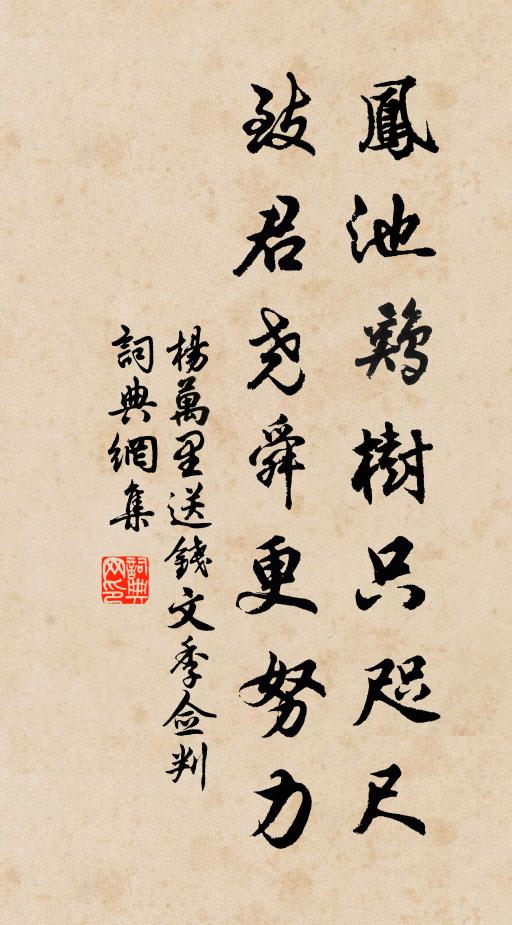 鳳池鷄樹只咫尺
致君尧舜更努力
楊萬里送錢文季僉判
詞典網集
詞典
网印